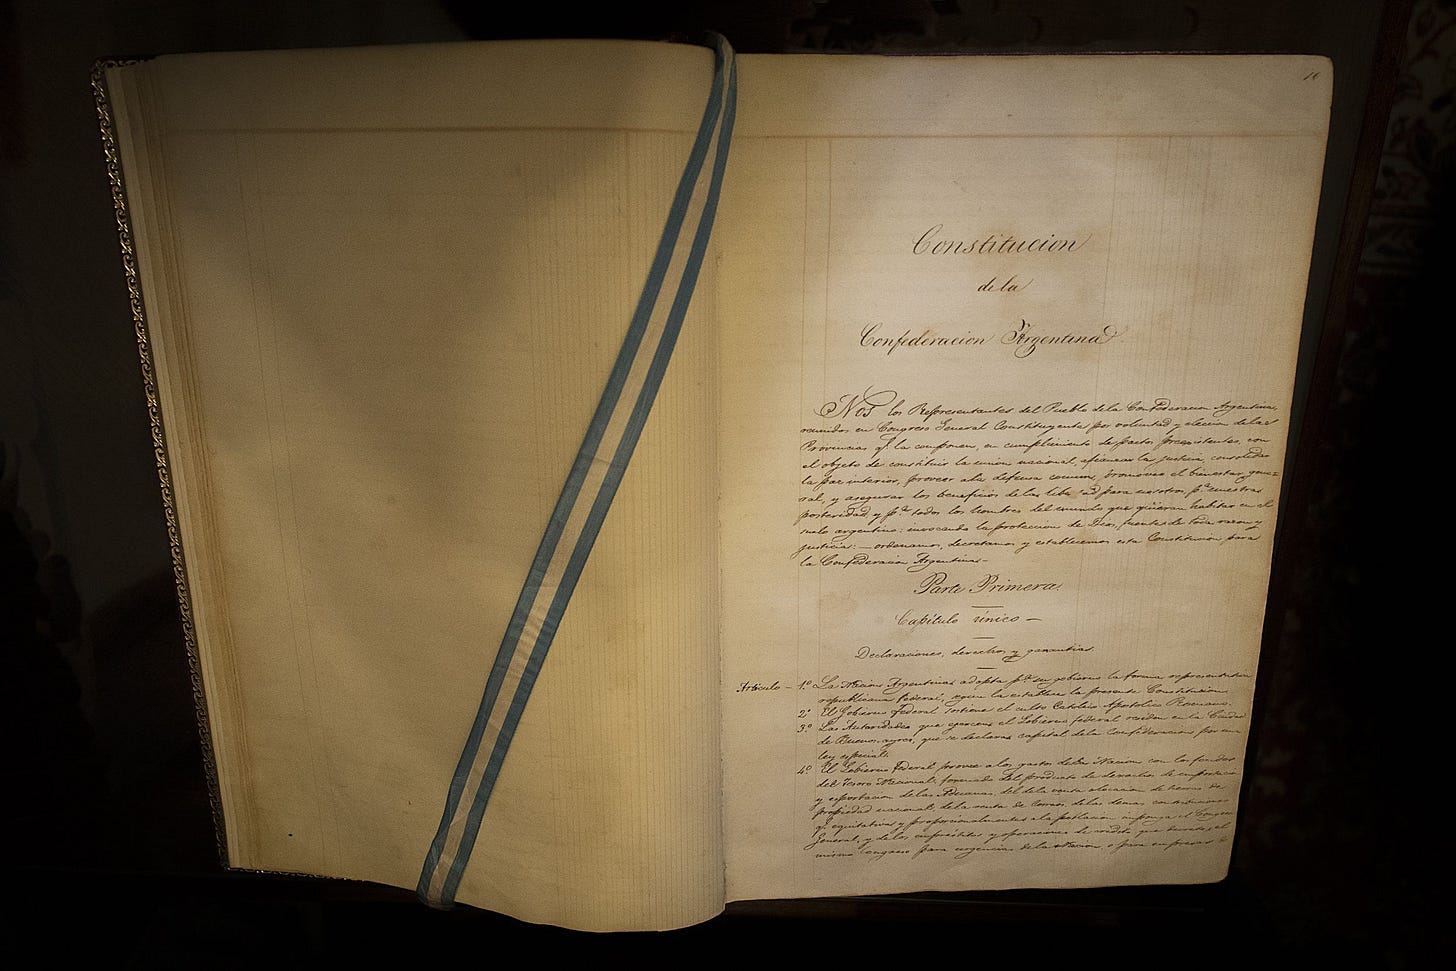 16
Constitucion
de la
Confederacion Argentina
Nos los Representantes del Pueblo de la Confederacion Argentina,
reunidos en Congreso General Constituyente por voluntad y eleccion de las
Provincias q.e la componen, en cumplimiento de pactos preexistentes, con
el objeto de constituir la union nacional, afianzar la justicia, consolidar
la paz interior, proveer a la defensa comun, promover el bienestar gene=
ral, y asegurar los beneficios de la libertad para nosotros, p.a nuestra
posteridad y p.a todos los hombres del mundo que quieran habitar en el
suelo argentino: invocando la proteccion de Dios, fuente de toda razon y
justicia: — ordenamos, decretamos y establecemos esta Constitucion para
la Confederacion Argentina.—
Parte Primera.
Capítulo único —
Declaraciones, derechos y garantias.
Articulo — 1.º La Nacion Argentina adopta p.a su gobierno la forma representativa
republicana federal, segun la establece la presente Constitucion.
2.º El Gobierno Federal sostiene el culto Catolico Apostolico Romano.
3.º Las Autoridades que ejercen el Gobierno federal residen en la Ciudad
de Buenos-ayres, que se declara capital de la Confederacion por una
ley especial.
4.º El Gobierno Federal provee a los gastos de la Nacion con los fondos
del Tesoro Nacional, formado del producto de derechos de importacion
y esportacion de las Aduanas, del de la venta o locacion de tierras de
propiedad nacional, de la renta de Correos, de las demas contribuciones
q.e equitativa y proporcionalmente a la poblacion imponga el Congreso
General, y de los emprestitos y operaciones de credito que decrete el
mismo Congreso para urgencias de la Nacion, o para empresas de